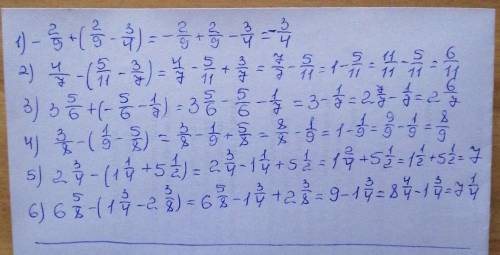 1) -2/9 + (2/9 - 3/4) = -2/9 + 2/9 - 3/4 = -3/4
2) 4/7 - (5/11 - 3/7) = 4/7 - 5/11 + 3/7 = 7/7 - 5/11 = 1 - 5/11 = 11/11 - 5/11 = 6/11
3) 3 5/6 + (-5/6 - 1/7) = 3 5/6 - 5/6 - 1/7 = 3 - 1/7 = 2 7/7 - 1/7 = 2 6/7
4) 3/8 - (1/9 - 5/8) = 3/8 - 1/9 + 5/8 = 8/8 - 1/9 = 1 - 1/9 = 9/9 - 1/9 = 8/9
5) 2 3/4 - (1 1/4 + 5 1/2) = 2 3/4 - 1 1/4 + 5 1/2 = 1 2/4 + 5 1/2 = 1 1/2 + 5 1/2 = 7
6) 6 5/8 - (1 3/4 - 2 3/8) = 6 5/8 - 1 3/4 + 2 3/8 = 9 - 1 3/4 = 8 4/4 - 1 3/4 = 7 1/4